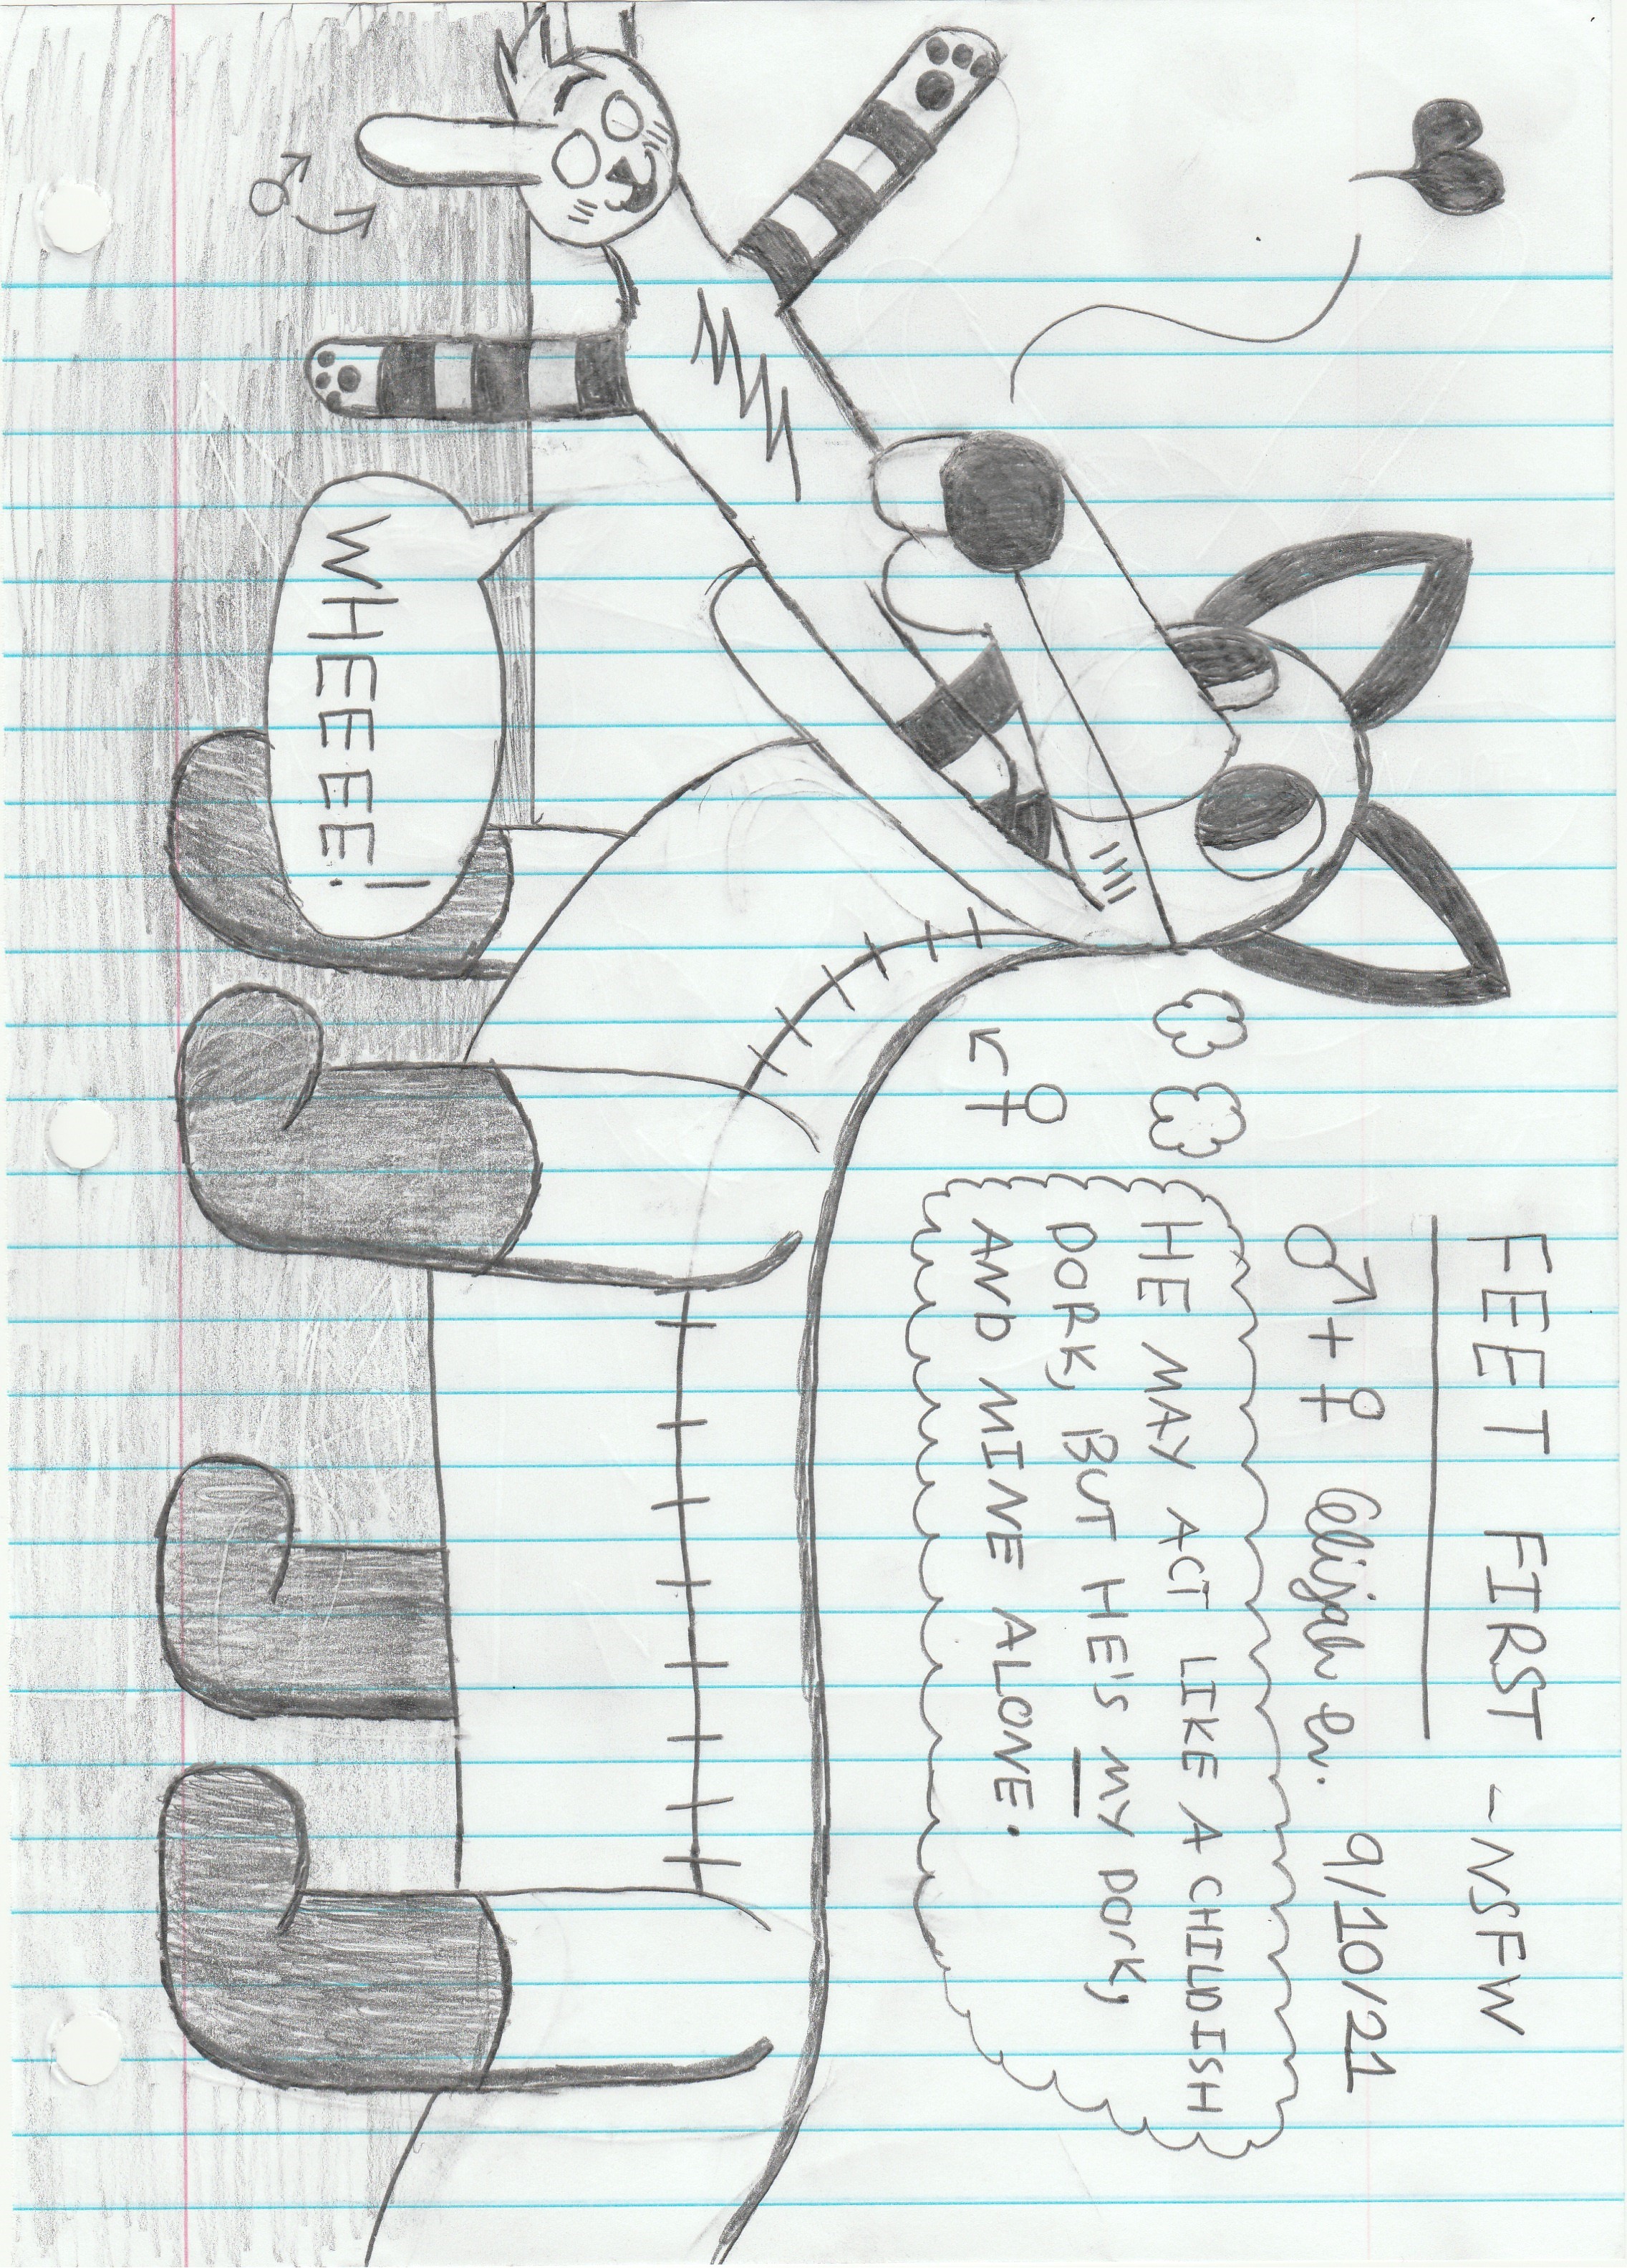 FEET FIRST - NSFW
♂ + ♀ Elijah 9/10/21
HE MAY ACT LIKE A CHILDISH
DORK, BUT HE'S MY DORK,
AND MINE ALONE.
♀
WHEEEE!
♂